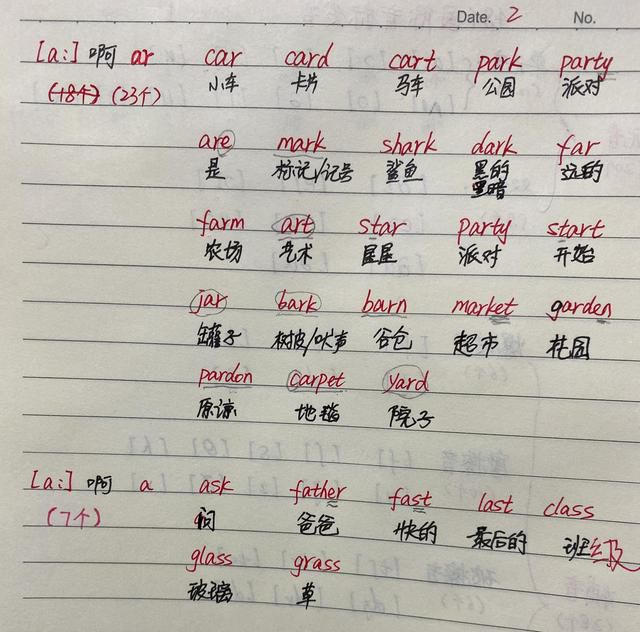 Date. 2 No.
[a:] 啊 ar car card cart park party
(18个) (23个) 小车 卡片 马车 公园 派对
are mark shark dark far
是 标记/记号 鲨鱼 黑的 远的
黑暗
farm art star party start
农场 艺术 星星 派对 开始
jar bark barn market garden
罐子 树皮/吠声 谷仓 超市 花园
pardon carpet yard
原谅 地毯 院子
[a:] 啊 a ask father fast last class
(7个) 问 爸爸 快的 最后的 班级
glass grass
玻璃 草